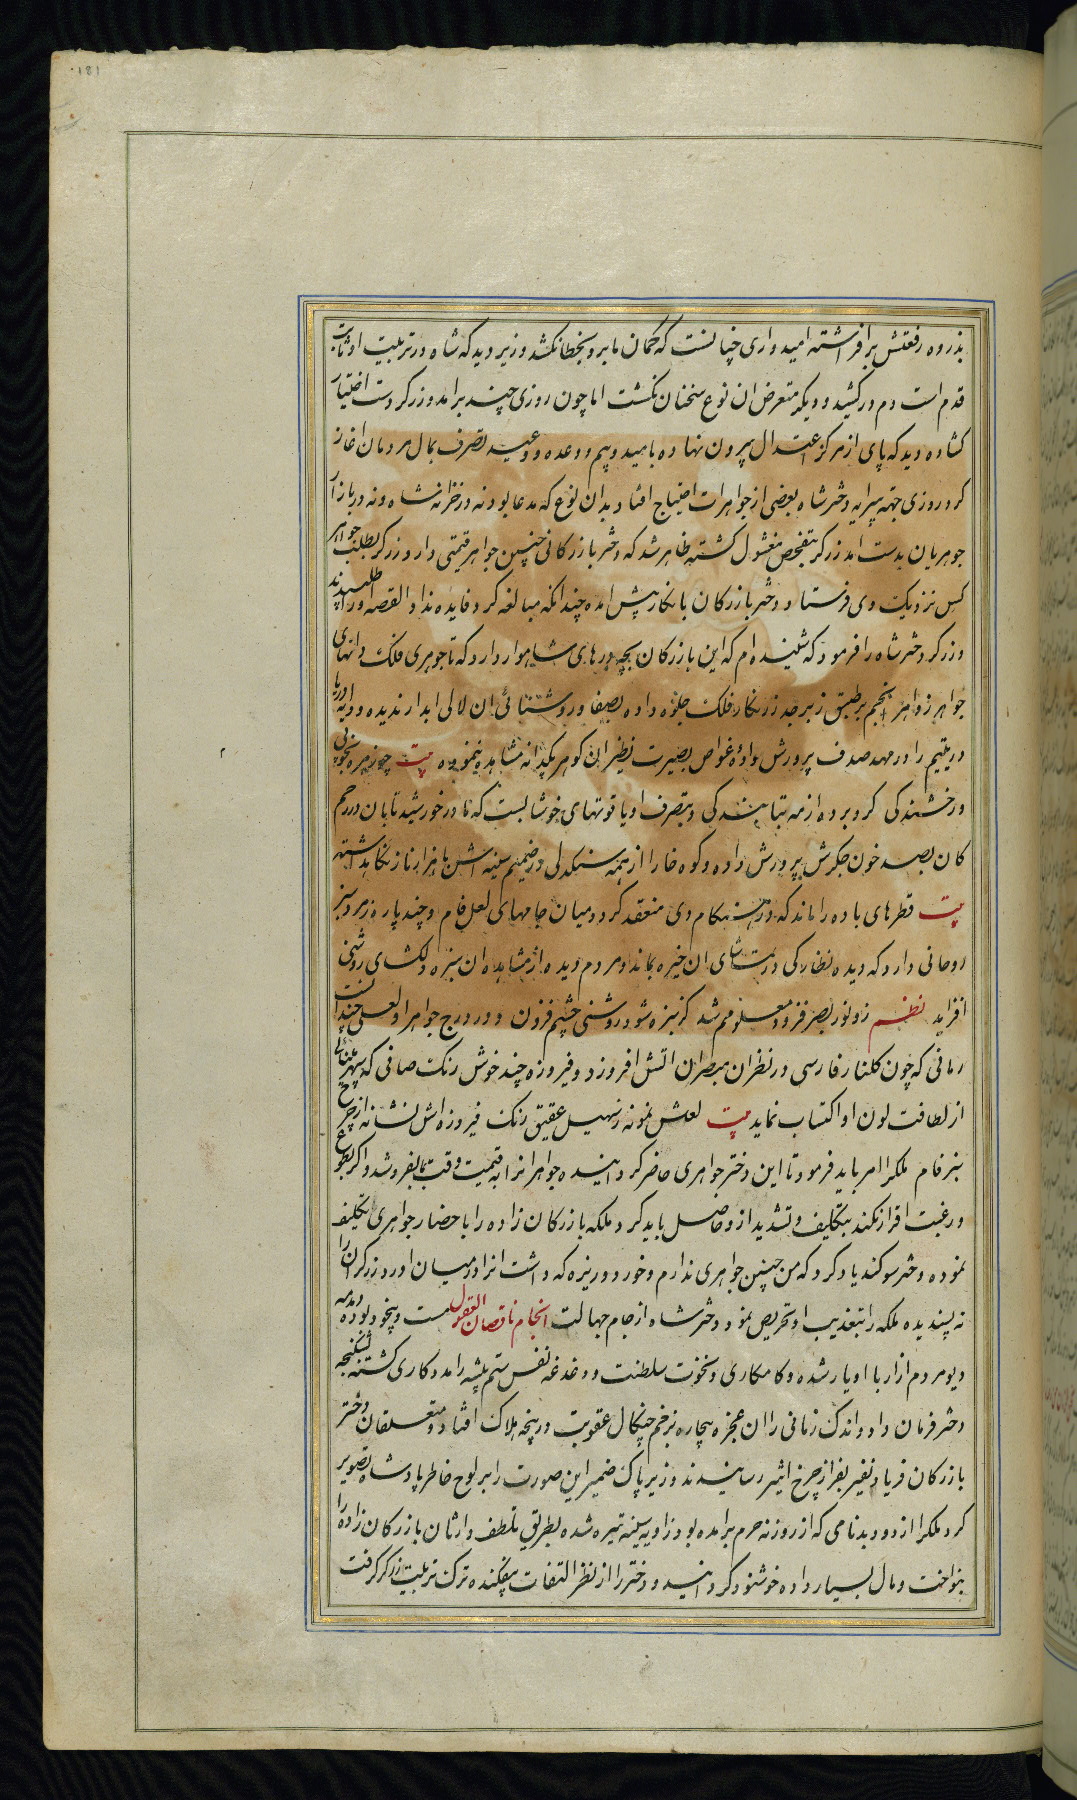 181
بذروه رفعتش برافراشته امیدواری چنانست که گمان ما برو بخطا نکشد وزیر دید که شاه در تربیت او ثابت
قدم است دم درکشید و دیگر متعرض ان نوع سخنان نگشت اما چون روزی چند برامد و زرگر دست اختیار
گشاده دید که پای از مرکز اعتدال بیرون نهاده بامید و بیم و وعده و وعید تصرف بمال مردمان اغاز
کرد روزی جهة پیرایه دختر شاه بعضی از جواهرات احتیاج افتاد بدان نوع که مدعا بود نه در خزانه شاه و نه در بازار
جوهریان بدست امد زرگر بتفحص مشغول گشته ظاهر شد که دختر بازرگانی چنین جواهر قیمتی دارد زرگر بطلب جواهر
کس نزدیک وی فرستاد و دختر بازرگان بانکار پیش امده چندانکه مبالغه کرد فایده نداد القصه ورا طلبیدند
و زرگر دختر شاه را فرمود که شنیده ام که این بازرگان بچه درهای شاهوار دارد که تا جوهری فلک دانهای
جواهر زواهر انجم بر طبق زبرجد زرنگار فلک جلوه داده بصفا و روشنائی ان لالی ابدار ندیده و دایه دریا
در یتیم را در مهد صدف پرورش داده غواص بصیرت نظیر ان گوهر یکدانه مشاهده ننموده بیت چو زهره بخوبی
و رخشندگی گرو برده از مه بتابندگی و بتصرف او یاقوتهای خوشابست که تا در خورشید تابان در رحم
کان بصد خون جگرش پرورش داده و کوه خارا از همه سنگدلی در ضمیم سینه اش با هزار ناز نگاهداشته
بیت قطرهای باده را ماند که در هنگام وی منعقد گردد میان جامهای لعل فام و چند پاره زمرد سبز
روحانی دارد که دیده نظارگی در تماشای ان خیره بماند و مردم دیده از مشاهده ان سبزه دلکشای روشنی
افزاید نظم زو نور بصر فزود معلومم شد کز سبزه شود روشنی چشم فزون و در درج جواهر او لعل چندانست
رمانی که چون گلنار فارسی در نظران مبصران اتش افروزد و فیروزه چند خوش رنگ صافی که سپهر مینائی
از لطافت لون او اکتساب نماید بیت لعلش نمونه ز سهیل عقیق رنگ فیروزه اش نشانه از چرخ
سبز فام ملکرا امر باید فرمود تا این دختر جواهری حاضر گردانیده جواهر انرا به قیمت وقت بما بفروشد و اگر بطوع
و رغبت اقرار نکند بتکلیف و تشدید ازو حاصل باید کرد ملکه بازرگان زاده را باحضار جواهری تکلیف
نموده دختر سوگند یاد کرد که من چنین جواهری ندارم و خورد و ریزه که داشت انرا در میان اورد زرگر ان را
نه پسندیده ملکه را بتعذیب او تحریص نمود و دختر شاه از جام جهالت انجام ناقصان العقول مست و بیخود بود دمدمه
دیو مردم ازار با او یار شده و کامکاری و نخوت سلطنت و دغدغه نفس ستم پیشه را مددکاری گشته بشکنجه
دختر فرمان داد و اندک زمانی را ان عجزه بیچاره بزخم چنگال عقوبت در پنجه هلاک افتاد و متعلقان دختر
بازرگان فریاد نفیر بفراز چرخ اثیر رسانیدند و زیر پاک ضمیر این صورت را بر لوح خاطر پادشاه تصویر
کرد ملکرا از دود بدنامی که از روزنه حرم برامده بود زاویه سینه تیره شده بطریق تلطف وارثان بازرگان زاده را
بنواخت و مال بسیار داده خوشنود گردانید و دختر را از نظر التفات بیفکنده ترک تربیت زرگر گرفت